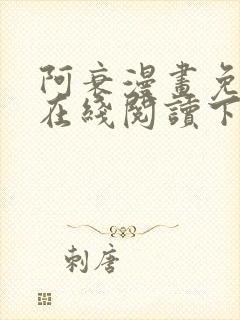 阿衰漫畫免
在綫閱讀下
刺唐